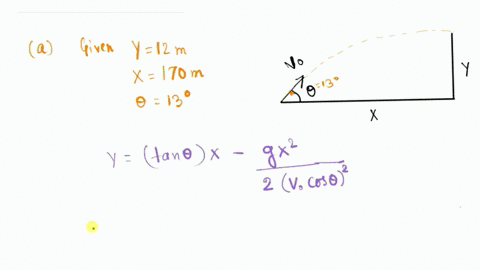 (a) Given Y = 12 m
X = 170 m
θ = 13°
V₀
θ=13°
Y
X
Y = (tanθ) X - gX² / 2 (V₀ cosθ)²